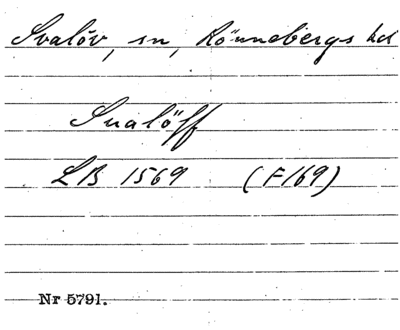 Svalöv, sn, Rönnebergs hd
Sualöff
LB 1569 (F169)
Nr 5791.